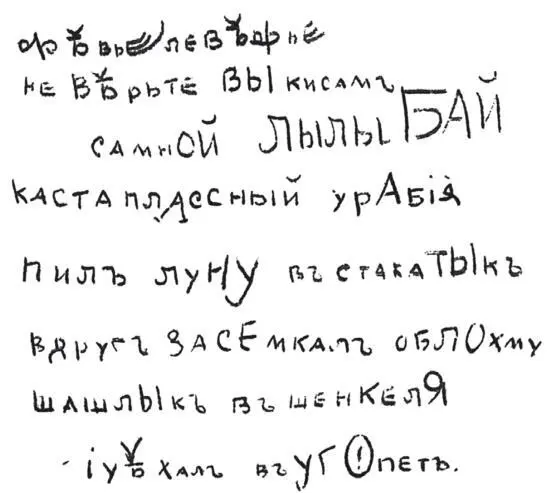 не вѣрьте Вы кисамъ
самной лылы БАЙ
каста плассный урАбія
пилъ луНУ въ стакаТЫкъ
вдругъ ЗАСЕмкалъ облОхму
шашлыкъ въ шенкелЯ
іуѣхалъ въ угОпетъ.